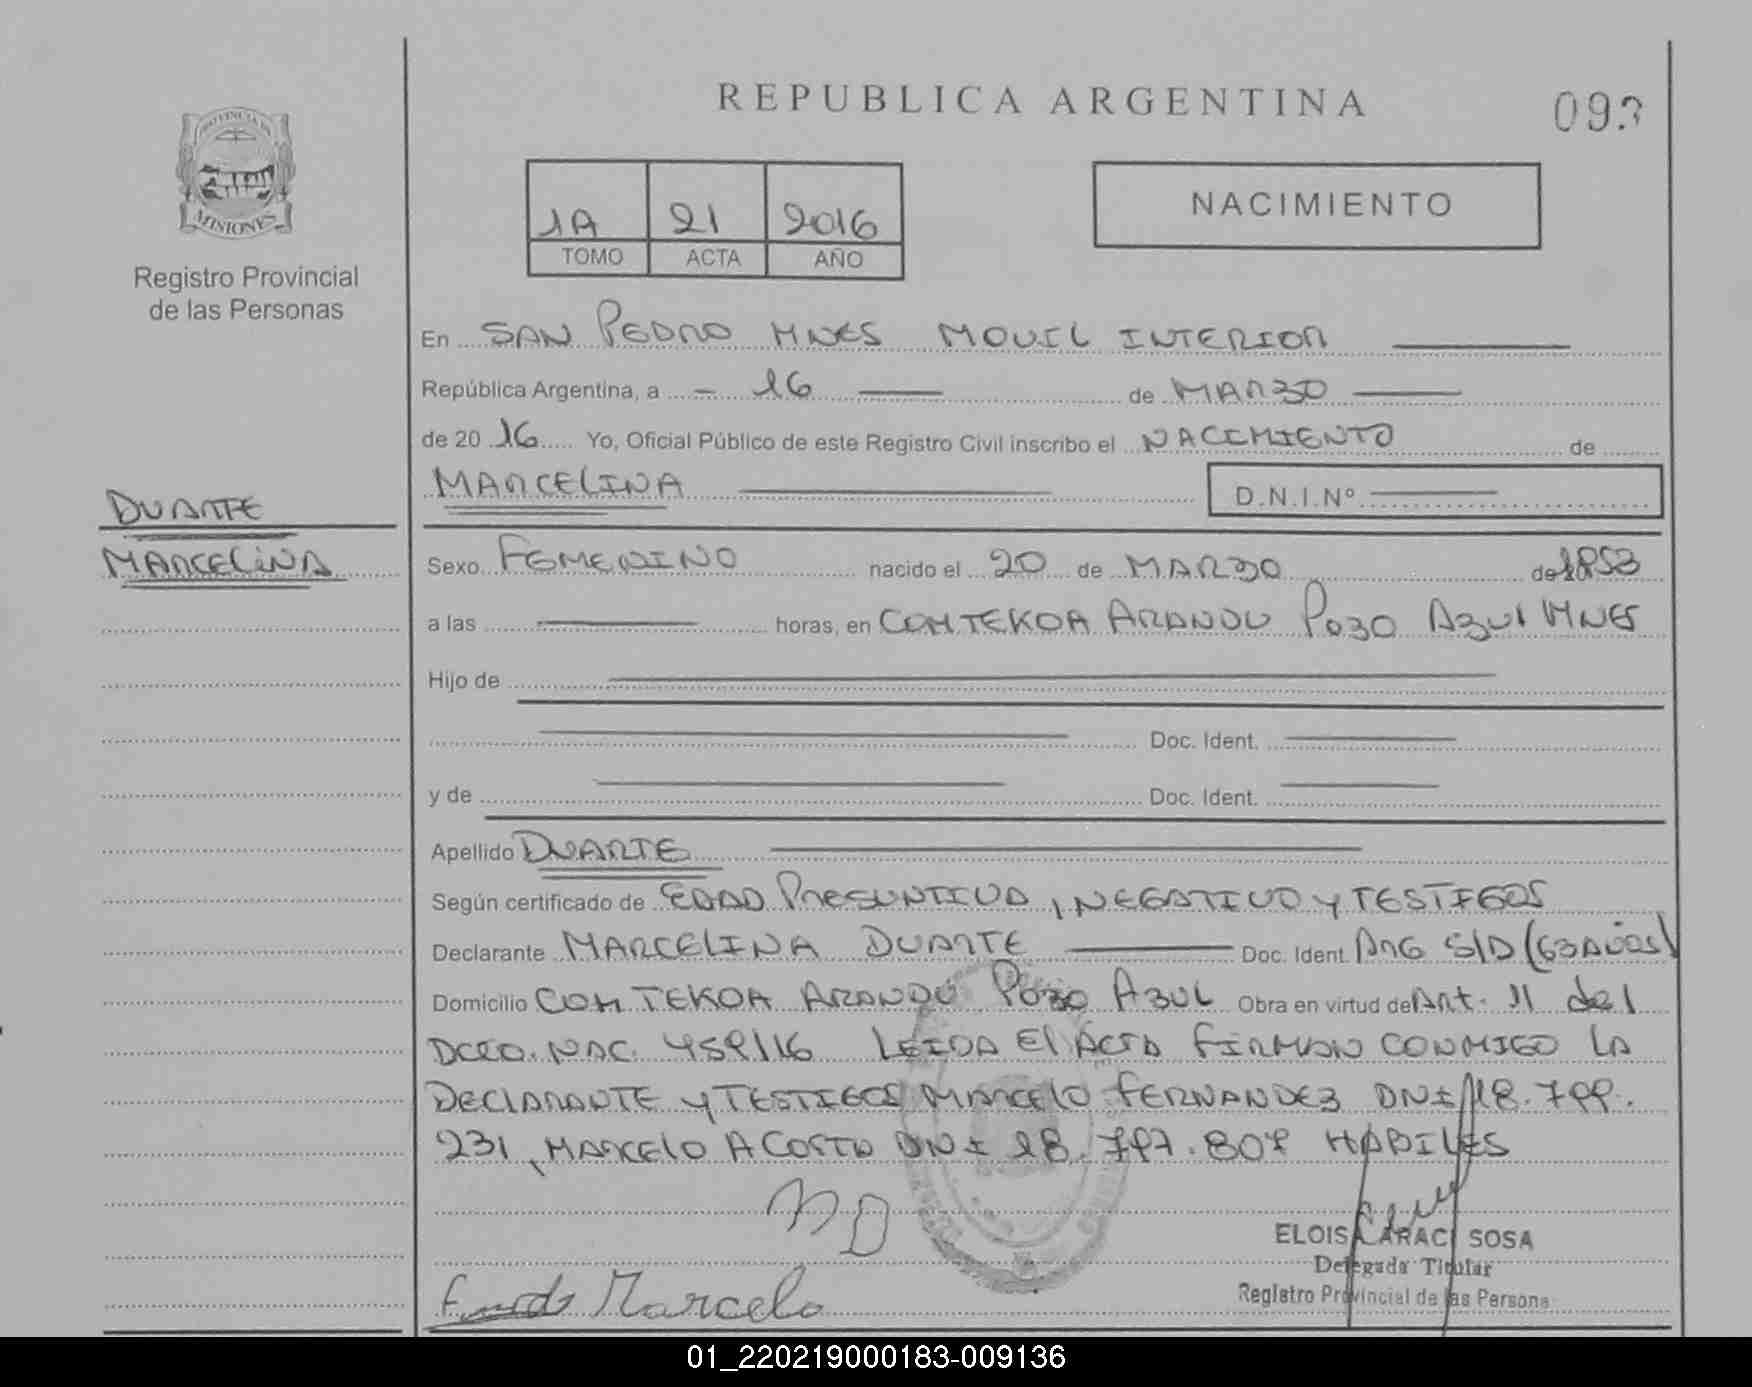 REPUBLICA ARGENTINA
093
PROVINCIA DE
MISIONES
Registro Provincial
de las Personas
1A 21 2016
TOMO ACTA AÑO
NACIMIENTO
En SAN PEDRO MNES MOVIL INTERIOR
República Argentina, a 16 de MARZO
de 20 16 Yo, Oficial Público de este Registro Civil inscribo el NACIMIENTO de
MARCELINA
D.N.I.Nº
DUARTE
MARCELINA
Sexo FEMENINO nacido el 20 de MARZO de 1953
a las horas, en COM TEKOA ARANDU POZO AZUL MNES
Hijo de
Doc. Ident.
y de Doc. Ident.
Apellido DUARTE
Según certificado de EDAD PRESUNTIVA, NEGATIVO y TESTIGOS
Declarante MARCELINA DUARTE Doc. Ident. ARG S/D (63 AÑOS)
Domicilio COM TEKOA ARANDU POZO AZUL Obra en virtud de Art. 11 del
DCTO. NAC. 459/16 LEIDA El ACTA FIRMAN CONMIGO LA
DECLARANTE y TESTIGOS MARCELO FERNANDEZ DNI 18.799.
231, MARCELO ACOSTA DNI 18.797.807 HABILES
MD
ELOISA ARACI SOSA
Delegada Titular
Registro Provincial de las Persona
Marcelo
01_220219000183-009136